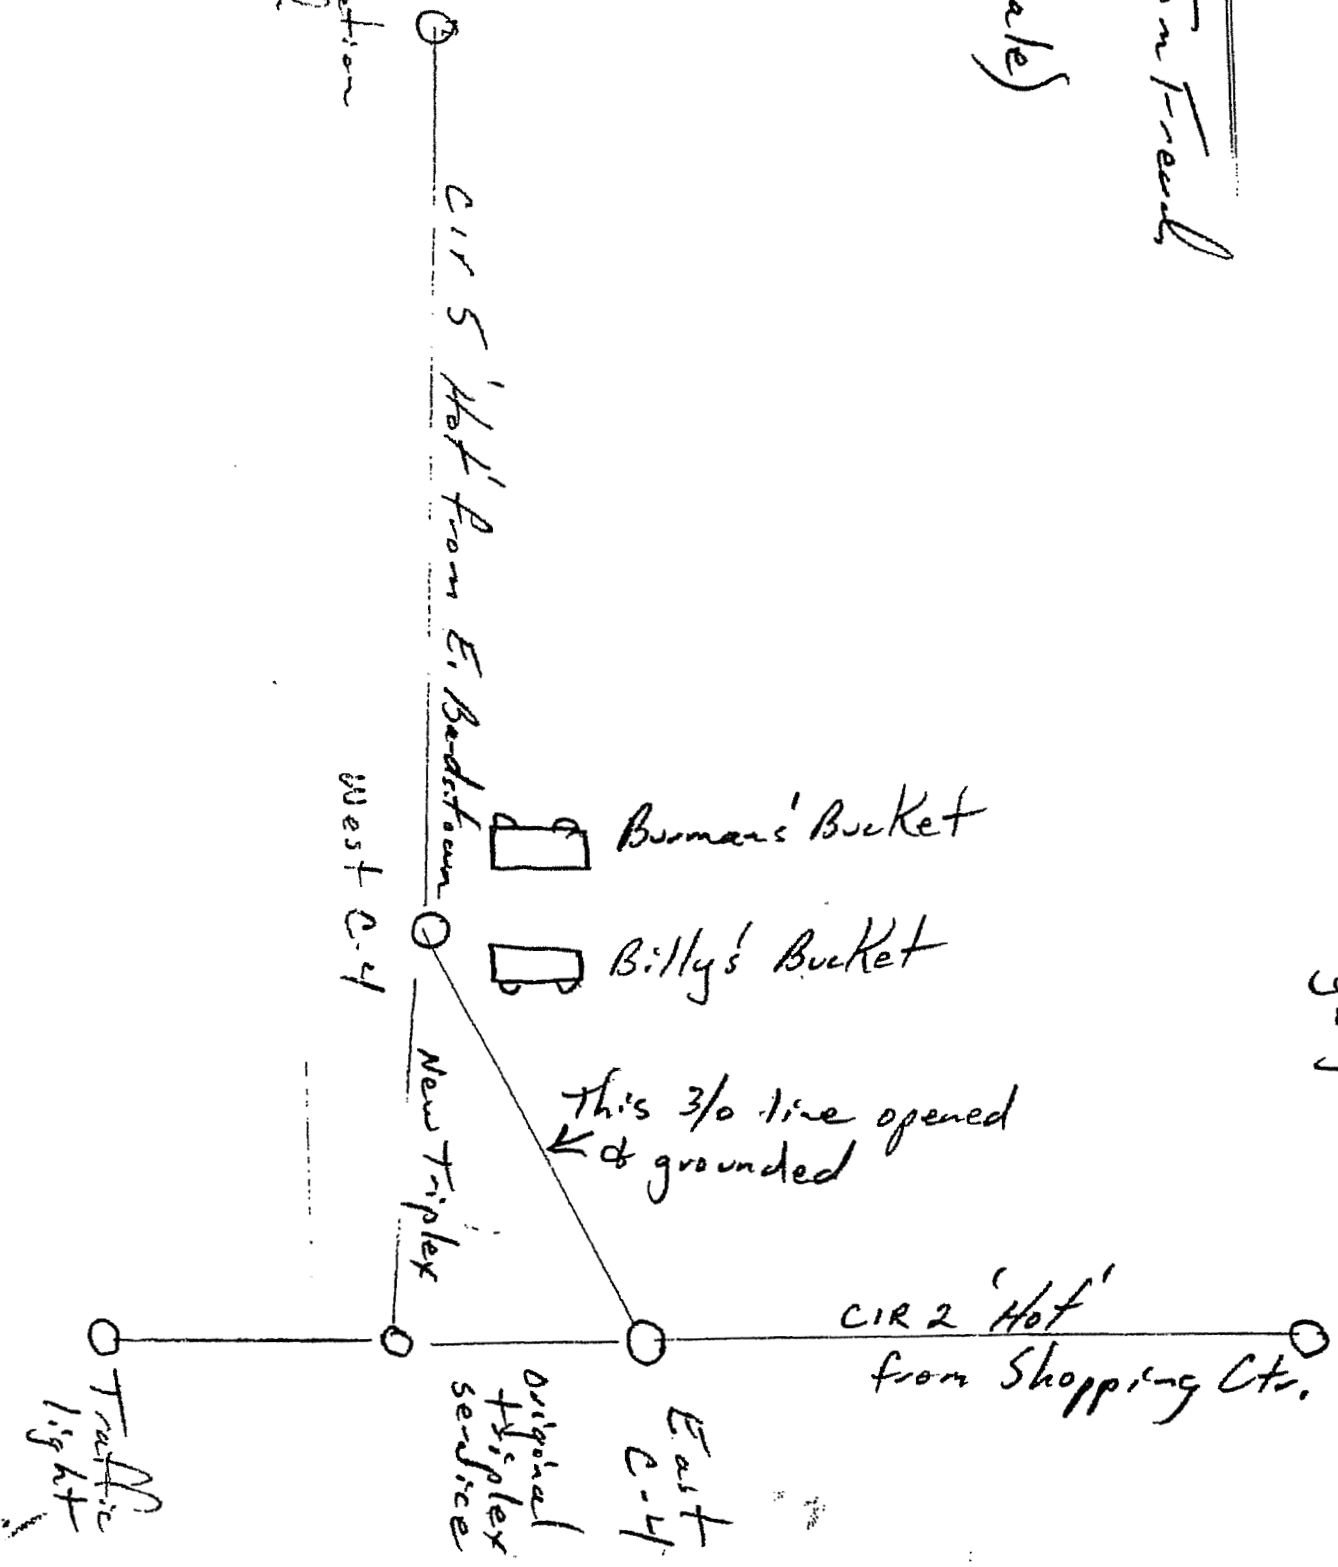 ale)
CIR 5 'Hot' from E. Bardstown
West C-4
Burman's Bucket
Billy's Bucket
This 3/0 line opened
& grounded
New Triplex
CIR 2 'Hot'
from Shopping Ctr.
East
C-4
Original
triplex
service
Traffic
light